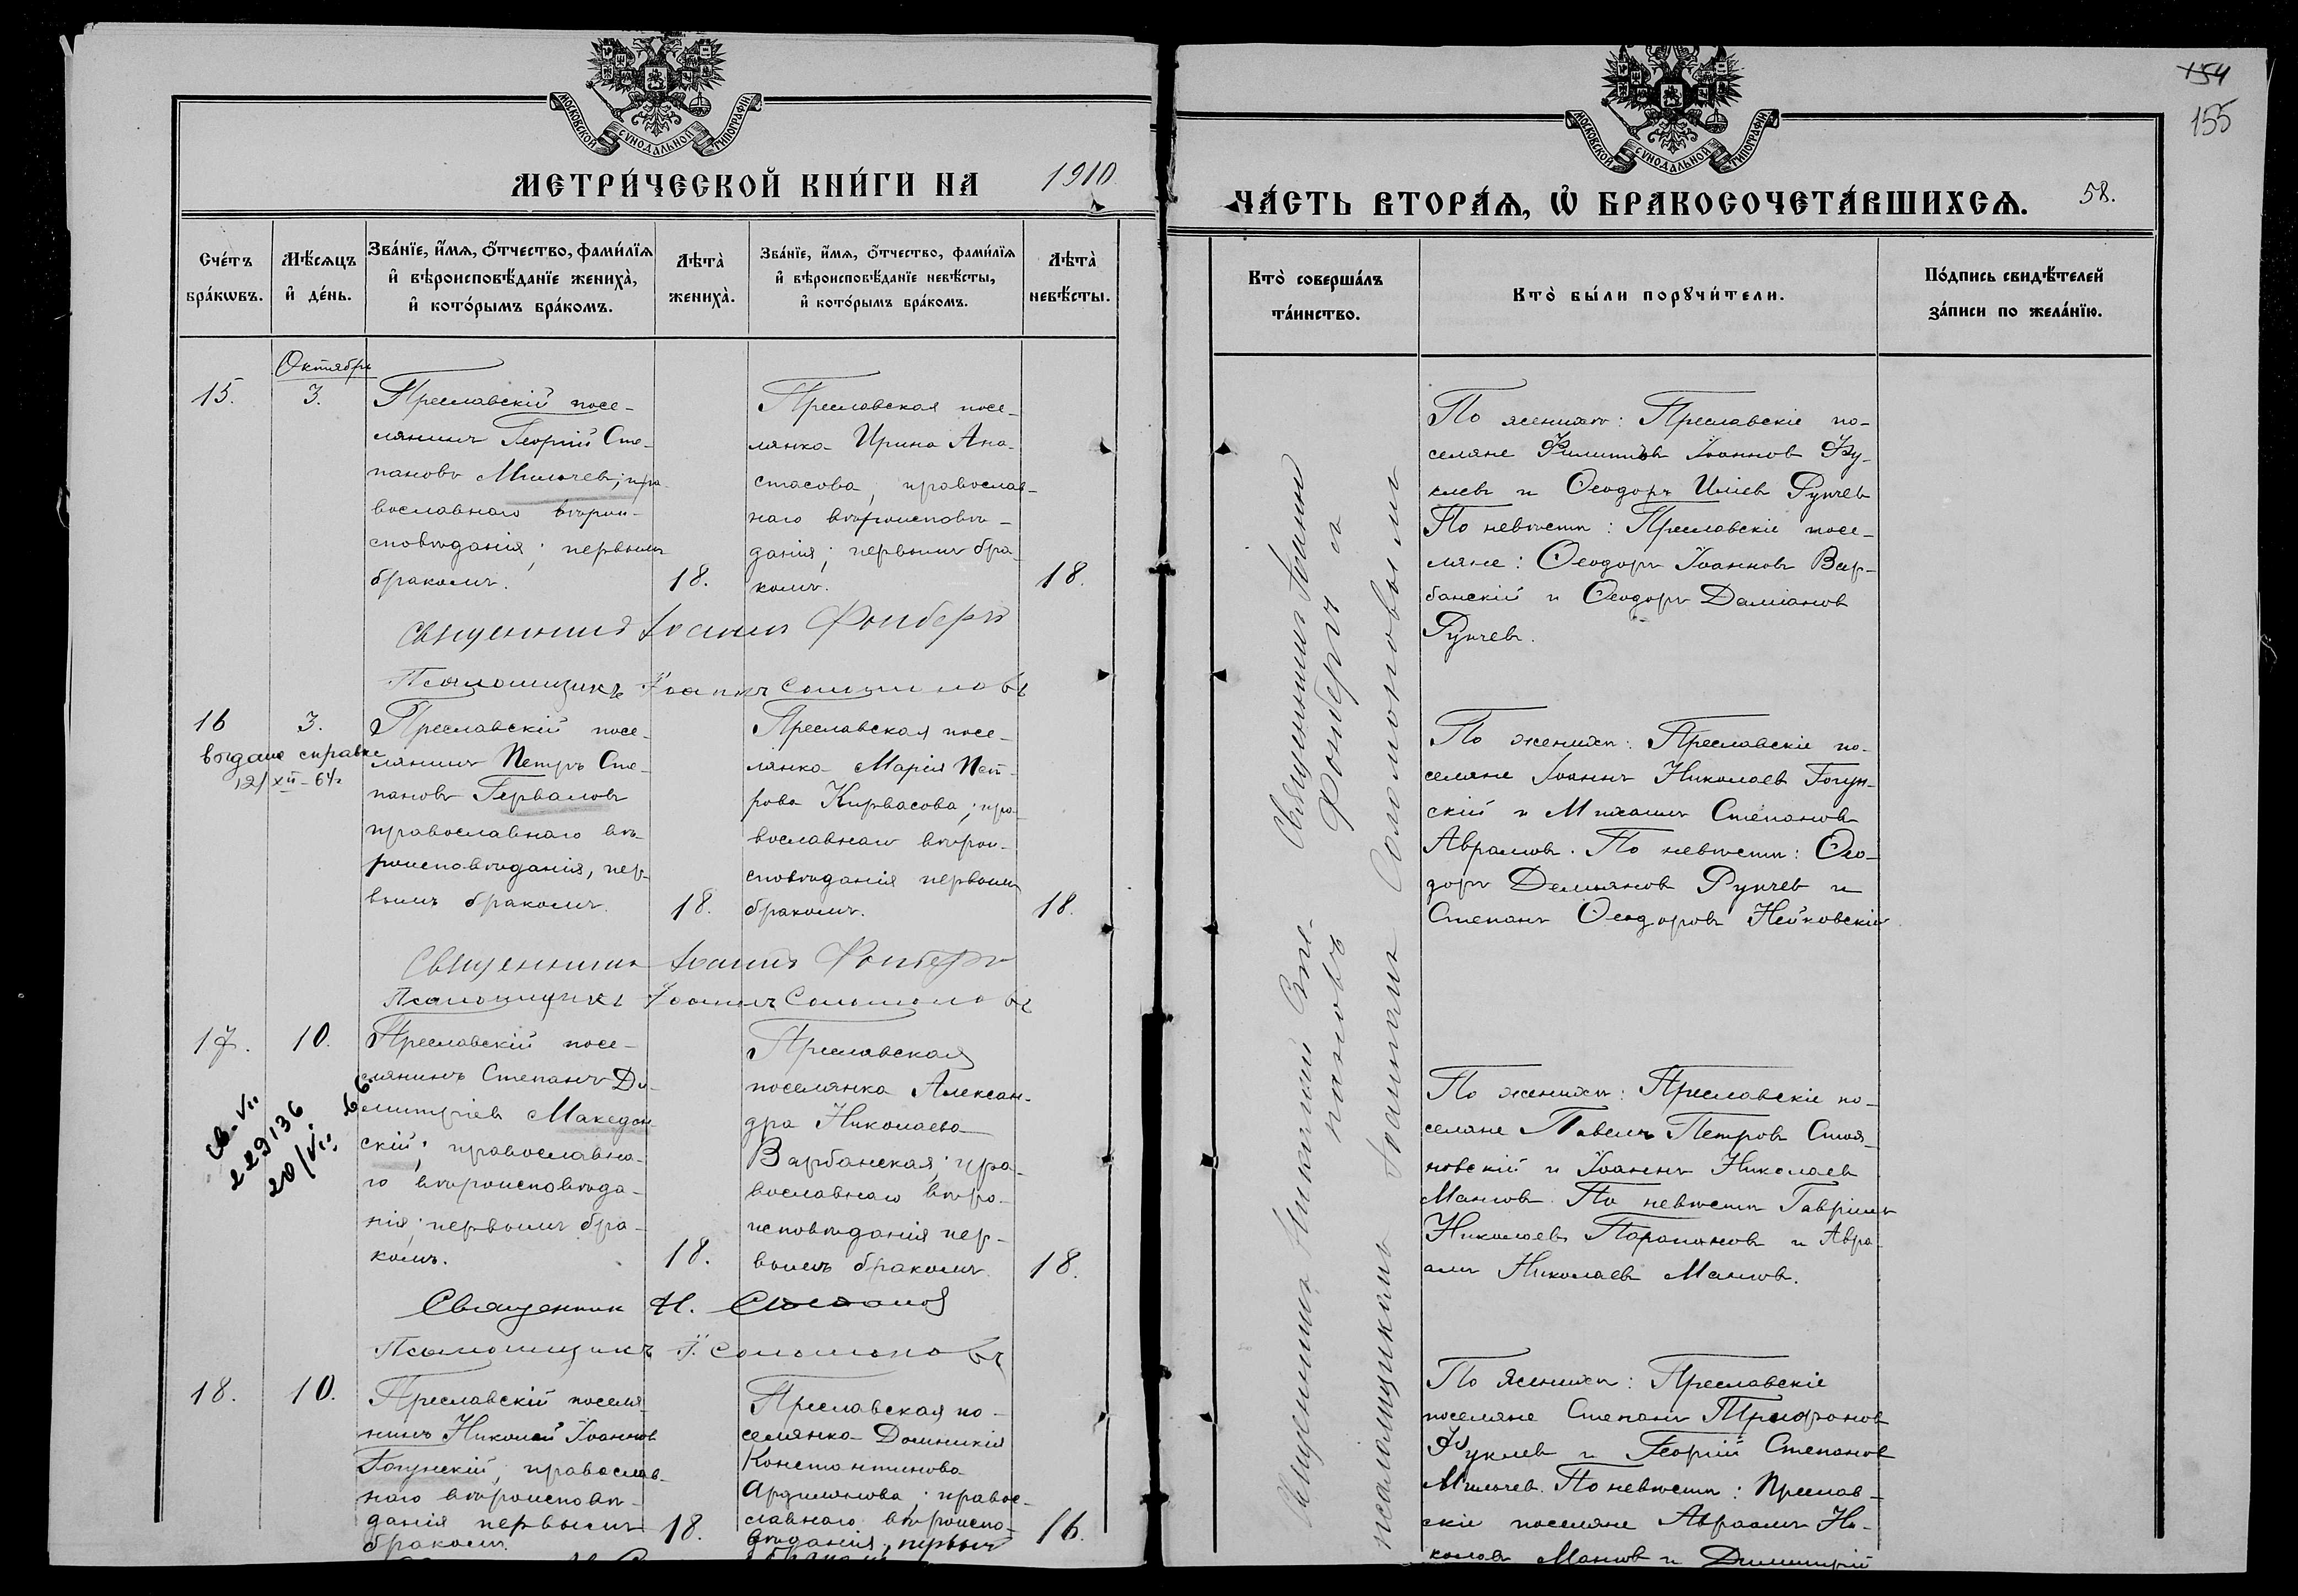 МОСКОВСКОЙ СѴНОДАЛЬНОЙ ТИПОГРАФІИ
МЕТРИ́ЧЕСКОЙ КНИ́ГИ НА 1910
Сче́тъ бра́кѡвъ.
Мѣ́сяцъ и҆ де́нь.
Зва́нїе, и҆́мѧ, ѻ҆́тчество, фами́лїѧ
и҆ вѣроисповѣ́данїе жениха̀,
и҆ кото́рымъ бра́комъ.
Лѣта̀ жениха̀.
Зва́нїе, и҆́мѧ, ѻ҆́тчество, фами́лїѧ
и҆ вѣроисповѣ́данїе невѣ́сты,
и҆ кото́рымъ бра́комъ.
Лѣта̀ невѣ́сты.
Октябрь
15.
3.
Преславскій посе-
лянинъ Георгій Сте-
пановъ Милчев; пра-
вославнаго вѣрои-
сповѣданія; первымъ
бракомъ.
18.
Преславская посе-
лянка Ирина Ана-
стасова, православ-
наго вѣроисповѣ-
данія; первымъ бра-
комъ.
18.
Священникъ Іоаннъ Фонберъ
Псаломщикъ Іоаннъ Соломоновъ
16
3.
выдана справка
12/XII-61г
Преславскій посе-
лянинъ Петръ Сте-
пановъ Гервалов
православнаго вѣ-
роисповѣданія, пер-
вымъ бракомъ.
18.
Преславская посе-
лянка Марія Пет-
рова Кирвасова; пра-
вославнаго вѣрои-
сповѣданія первымъ
бракомъ.
18.
Священникъ Іоаннъ Фонберъ
Псаломщикъ Іоаннъ Соломоновъ
17.
10.
229136
20/VII 66
Преславскій посе-
лянинъ Степанъ Ди-
митріев Македон-
скій; православна-
го вѣроисповѣда-
нія; первымъ бра-
комъ.
18.
Преславская
поселянка Алексан-
дра Николаева
Варбанская; пра-
вославнаго вѣро-
исповѣданія пер-
вымъ бракомъ.
18.
Священник Н. Степанов
Псаломщикъ І. Соломоновъ
18.
10.
Преславскій поселя-
нинъ Николай Іоаннов
Гогунскій; православ-
наго вѣроисповѣ-
данія первымъ
бракомъ.
18.
Преславская по-
селянка Домникія
Константинова
Арзиманова; правос-
славнаго вѣроиспо-
вѣданія, первым
16.
154
155
МОСКОВСКОЙ СѴНОДАЛЬНОЙ ТИПОГРАФІИ
ЧА́СТЬ ВТОРА́Ѧ, Ѡ҆ БРАКОСОЧЕТА́ВШИХСѦ. 58.
Кто̀ соверша́лъ та́инство.
Кто̀ бы́ли порꙋчи́тели.
По́дпись свидѣ́телей
за́писи по жела́нїю.
Священникъ Іоаннъ
Фонберъ и
Священникъ Николай Сте-
пановъ
псаломщикомъ Іоанномъ Соломоновымъ
По женихѣ: Преславскіе по-
селяне Филиппъ Іоаннов Фу-
клев и Ѳеодоръ Иліев Рупчев
По невѣстѣ: Преславскіе посе-
ляне: Ѳеодоръ Іоанновъ Вар-
банскій и Ѳеодоръ Даміанов
Рупчев.
По женихѣ: Преславскіе по-
селяне Іоаннъ Николаев Гогун-
скій и Михаилъ Степанов
Аврамов. По невѣстѣ: Ѳео-
доръ Демьянов Рупчев и
Степанъ Ѳеодоровъ Нейковскій
По женихѣ: Преславскіе по-
селяне Павелъ Петров Стоя-
новскій и Іоаннъ Николаев
Манов. По невѣстѣ Гавріилъ
Николаевъ Парапанов и Авра-
амъ Николаев Манов.
По женихѣ: Преславскіе
поселяне Степанъ Трифонов
Фуклев и Георгій Степанов
Милчев. По невѣстѣ: Преслав-
скіе поселяне Авраамъ Ни-
колаев Манов и Димитрій